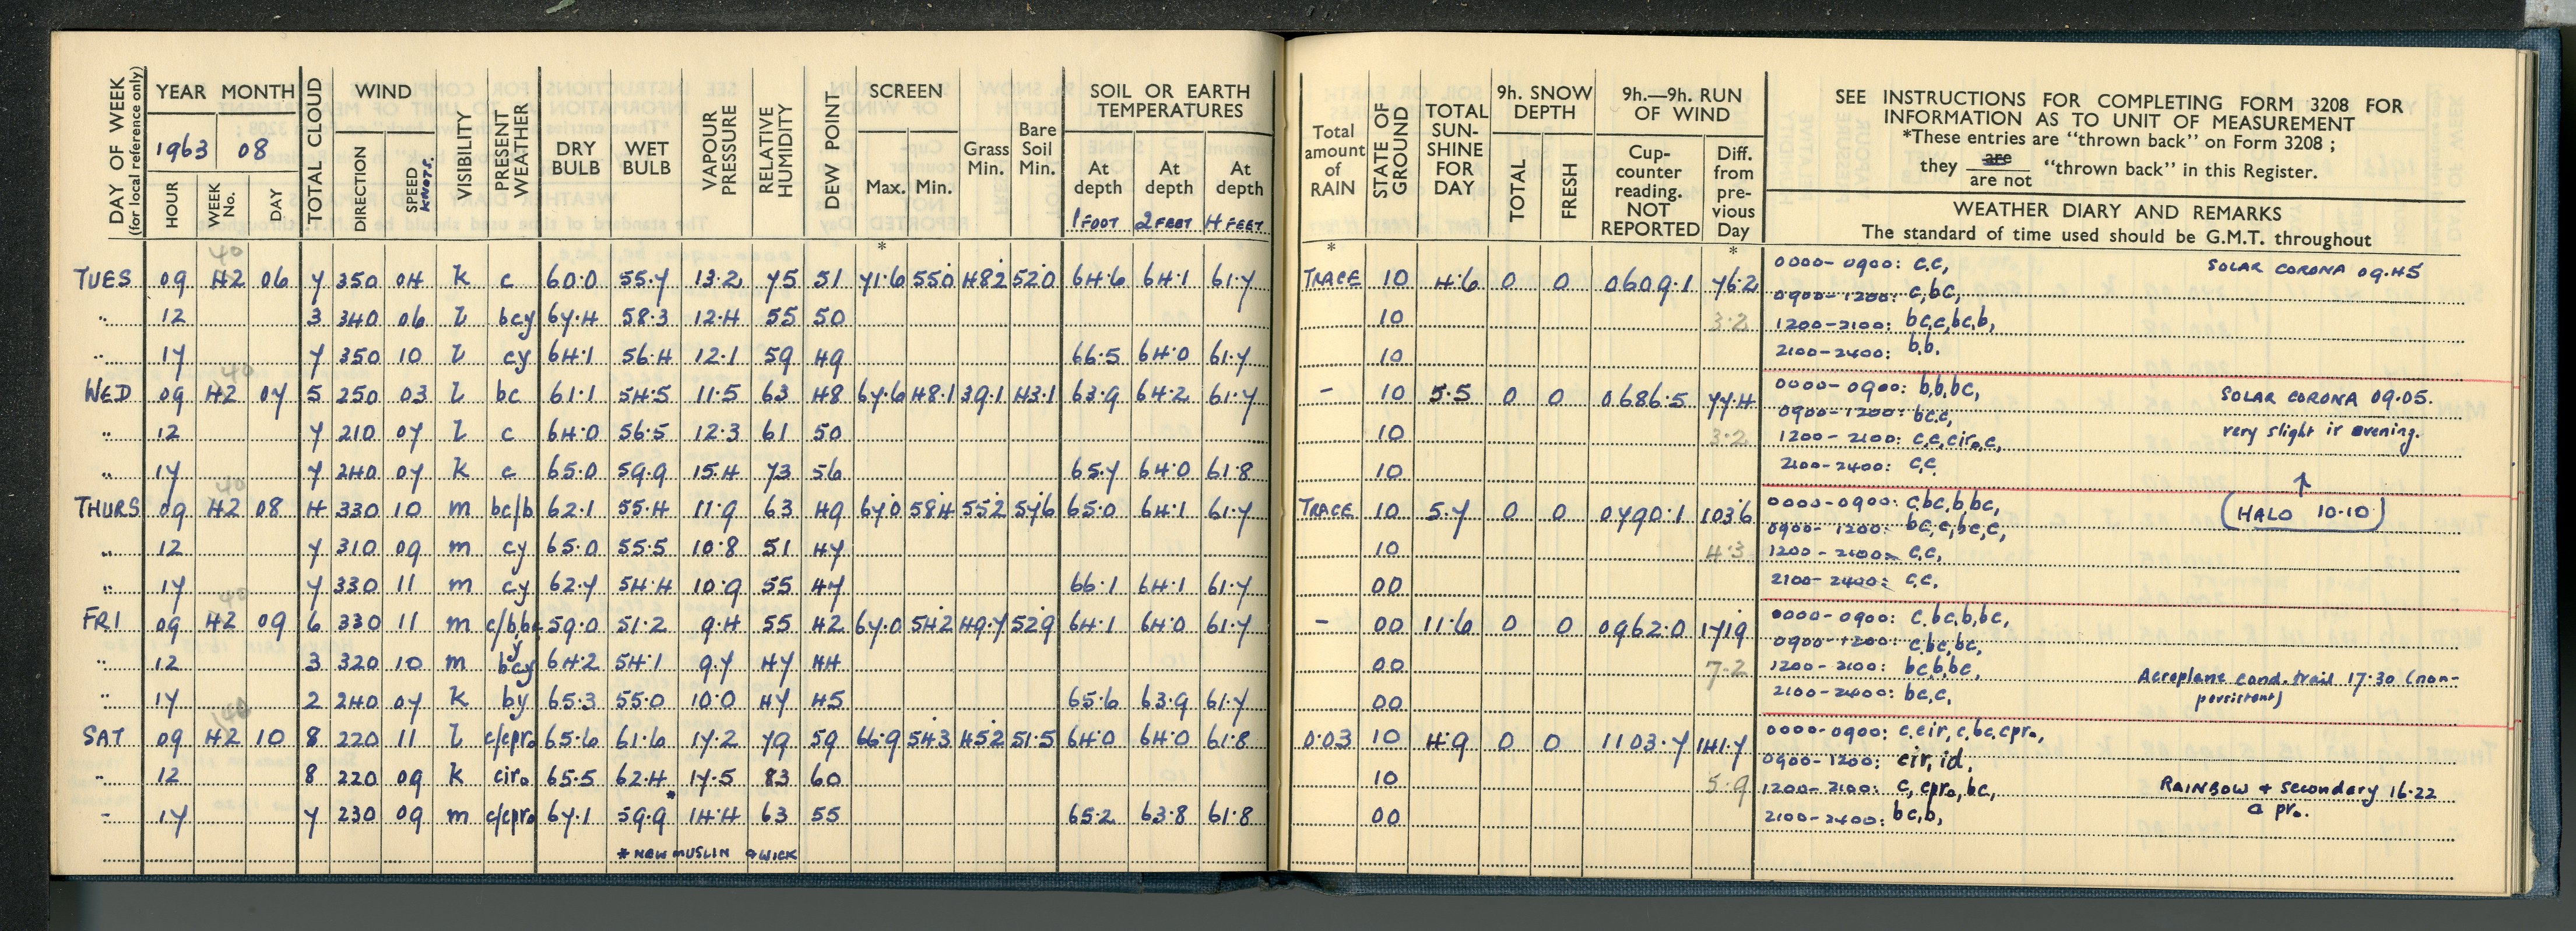 DAY OF WEEK
(for local reference only)
YEAR MONTH
1963 08
HOUR WEEK No. DAY
TOTAL CLOUD
WIND
DIRECTION SPEED KNOTS.
VISIBILITY
PRESENT WEATHER
DRY BULB
WET BULB
VAPOUR PRESSURE
RELATIVE HUMIDITY
DEW POINT
SCREEN
Max. Min.
Grass Min.
Bare Soil Min.
SOIL OR EARTH
TEMPERATURES
At depth At depth At depth
1 FOOT 2 FEET 4 FEET
*
40
TUES 09 42 06 7 350 04 k c 60.0 55.7 13.2 75 51 71.6 55.0 48.2 52.0 64.6 64.1 61.7
" 12 3 340 06 l bcy 67.4 58.3 12.4 55 50
" 17 7 350 10 l cy 64.1 56.4 12.1 59 49 66.5 64.0 61.7
40
WED 09 42 07 5 250 03 l bc 61.1 54.5 11.5 63 48 67.6 48.1 39.1 43.1 63.9 64.2 61.7
" 12 7 210 07 l c 64.0 56.5 12.3 61 50
" 17 7 240 07 k c 65.0 59.9 15.4 73 56 65.7 64.0 61.8
40
THURS 09 42 08 4 330 10 m bc/b 62.1 55.4 11.9 63 49 67.0 58.4 55.2 57.6 65.0 64.1 61.7
" 12 7 310 09 m cy 65.0 55.5 10.8 51 47
" 17 7 330 11 m cy 62.7 54.4 10.9 55 47 66.1 64.1 61.7
40
FRI 09 42 09 6 330 11 m c/b,bc y 59.0 51.2 9.4 55 42 67.0 54.2 49.7 52.9 64.1 64.0 61.7
" 12 3 320 10 m bcy 64.2 54.1 9.7 47 44
" 17 2 240 07 k by 65.3 55.0 10.0 47 45 65.6 63.9 61.7
40
SAT 09 42 10 8 220 11 l c/cpr₀ 65.6 61.6 17.2 79 59 66.9 54.3 45.2 51.5 64.0 64.0 61.8
" 12 8 220 09 k cir₀ 65.5 62.4 * 17.5 83 60
" 17 7 230 09 m c/cpr₀ 67.1 59.9 14.4 63 55 65.2 63.8 61.8
* NEW MUSLIN & WICK
Total amount of RAIN
STATE OF GROUND
TOTAL SUN-SHINE FOR DAY
9h. SNOW DEPTH
TOTAL FRESH
9h.—9h. RUN OF WIND
Cup-counter reading. NOT REPORTED
Diff. from pre-vious Day
SEE INSTRUCTIONS FOR COMPLETING FORM 3208 FOR
INFORMATION AS TO UNIT OF MEASUREMENT
*These entries are "thrown back" on Form 3208 ;
they are / are not "thrown back" in this Register.
WEATHER DIARY AND REMARKS
The standard of time used should be G.M.T. throughout
* *
TRACE 10 4.6 0 0 0609.1 76.2 0000-0900: c.c, SOLAR CORONA 09.45
0900-1200: c,bc,
10 3.2 1200-2100: bc,c,bc,b,
10 2100-2400: b.b.
- 10 5.5 0 0 0686.5 77.4 0000-0900: b,b,bc, SOLAR CORONA 09.05.
0900-1200: bc.c,
10 3.2 1200-2100: c,c,cir₀,c, very slight ir evening.
10 2100-2400: c,c, ↑
TRACE 10 5.7 0 0 0790.1 103.6 0000-0900: c,bc,b,bc, (HALO 10.10)
0900-1200: bc,c,bc,c,
10 4.3 1200-2100: c,c,
00 2100-2400: c,c.
- 00 11.6 0 0 0962.0 171.9 0000-0900: c,bc,b,bc,
0900-1200: c,bc,bc,
00 7.2 1200-2100: bc,b,bc,
00 2100-2400: bc,c, Aeroplane cond. trail 17.30 (non-
persistent)
0.03 10 4.9 0 0 1103.7 141.7 0000-0900: c,eir,c,bc,cpr₀,
0900-1200: cir, id,
10 5.9 1200-2100: c, cpr₀, bc, RAINBOW + secondary 16.22
00 2100-2400: bc,b, a pr₀.